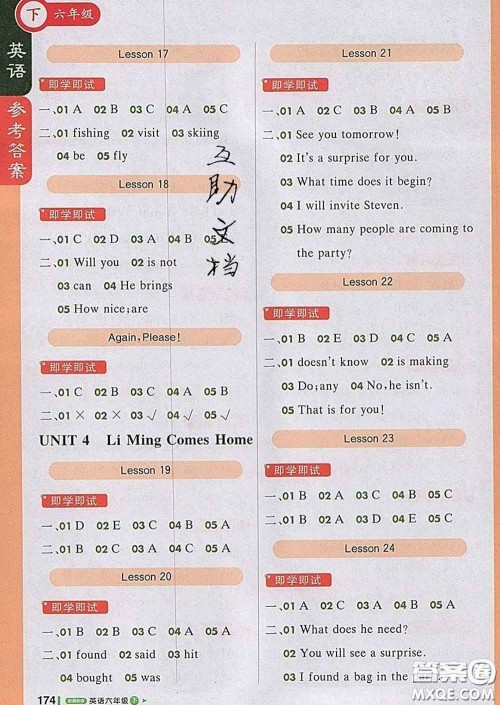 下 六年级
英语
参考答案
Lesson 17
即学即试
一、01 A 02 B 03 C 04 A 05 A
二、01 fishing 02 visit 03 skiing
04 be 05 fly
Lesson 18
即学即试
一、01 C 02 D 03 A 04 B 05
二、01 Will you 02 is not
03 can 04 He brings
05 How nice;are
Again, Please!
即学即试
一、01 C 02 B 03 C 04 A 05 B
二、01 × 02 × 03 √ 04 √ 05 √
UNIT 4 Li Ming Comes Home
Lesson 19
即学即试
一、01 D 02 E 03 C 04 B 05 A
Lesson 20
即学即试
一、01 B 02 A 03 A 04 B 05 A
二、01 found 02 said 03 hit
04 bought 05 was
互助文档
Lesson 21
即学即试
一、01 A 02 B 03 C 04 A 05 C
二、01 See you tomorrow!
02 It's a surprise for you.
03 What time does it begin?
04 I will invite Steven.
05 How many people are coming to
the party?
Lesson 22
即学即试
一、01 B 02 E 03 D 04 A 05 C
二、01 doesn't know 02 is making
03 Do;any 04 No, he isn't.
05 That is for you!
Lesson 23
即学即试
一、01 B 02 A 03 C 04 B 05 A
二、01 B 02 A 03 E 04 D 05 C
Lesson 24
即学即试
一、01 A 02 C 03 B 04 B 05 C
二、01 Who need help?
02 You will see a surprise.
03 I have a gift
04 I had a good
05 She is under the chair.
174 英语六年级 下
答案圈
MXQE.COM